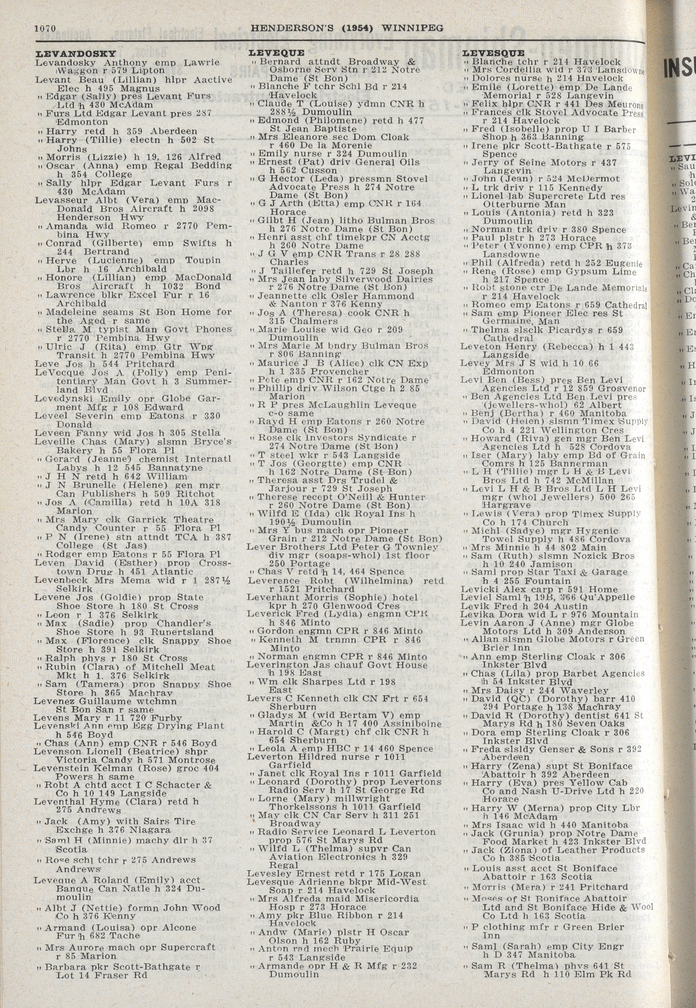 1070
HENDERSON'S (1954) WINNIPEG
LEVANDOSKY
Levandosky Anthony emp Lawrie
Waggon r 579 Lipton
Levant Beau (Lillian) hlpr Aactive
Elec h 495 Magnus
" Edgar (Sally) pres Levant Furs
Ltd h 430 McAdam
" Furs Ltd Edgar Levant pres 287
Edmonton
" Harry retd h 359 Aberdeen
" Harry (Tillie) electn h 502 St
Johns
" Morris (Lizzie) h 19, 126 Alfred
" Oscar (Anna) emp Regal Bedding
h 354 College
" Sally hlpr Edgar Levant Furs r
430 McAdam
Levasseur Albt (Vera) emp Mac-
Donald Bros Aircraft h 2098
Henderson Hwy
" Amanda wid Romeo r 2770 Pem-
bina Hwy
" Conrad (Gilberte) emp Swifts h
244 Bertrand
" Herve (Lucienne) emp Toupin
Lbr h 16 Archibald
" Honore (Lillian) emp MacDonald
Bros Aircraft h 1032 Bond
" Lawrence blkr Excel Fur r 16
Archibald
" Madeleine seams St Bon Home for
the Aged r same
" Stella M typist Man Govt Phones
r 2770 Pembina Hwy
" Ulric J (Rita) emp Gtr Wpg
Transit h 2770 Pembina Hwy
Leve Jos h 544 Pritchard
LeVecque Jos A (Polly) emp Peni-
tentiary Man Govt h 3 Summer-
land Blvd
Levedynski Emily opr Globe Gar-
ment Mfg r 108 Edward
Leveel Severin emp Eatons r 330
Donald
Leveen Fanny wid Jos h 305 Stella
Leveille Chas (Mary) slsmn Bryce's
Bakery h 55 Flora Pl
" Gerard (Jeanne) chemist Internatl
Labys h 12 545 Bannatyne
" J H N retd h 642 William
" J N Brunelle (Helene) gen mgr
Can Publishers h 509 Ritchot
" Jos A (Camilla) retd h 10A 318
Marion
" Mrs Mary clk Garrick Theatre
Candy Counter r 55 Flora Pl
" P N (Irene) stn attndt TCA h 387
College (St Jas)
" Rodger emp Eatons r 55 Flora Pl
Leven David (Esther) prop Cross-
town Drug h 451 Atlantic
Levenbeck Mrs Mema wid r 1 287½
Selkirk
Levene Jos (Goldie) prop State
Shoe Store h 180 St Cross
" Leon r 1 376 Selkirk
" Max (Sadie) prop Chandler's
Shoe Store h 93 Rupertsland
" Max (Florence) clk Snappy Shoe
Store h 391 Selkirk
" Ralph phys r 180 St Cross
" Rubin (Clara) of Mitchell Meat
Mkt h 1, 376 Selkirk
" Sam (Tamera) prop Snappy Shoe
Store h 365 Machray
Levenez Guillaume wtchmn
St Bon San r same
Levens Mary r 11 720 Furby
Levenski Ann emp Egg Drying Plant
h 546 Boyd
" Chas (Ann) emp CNR r 546 Boyd
Levenson Lionell (Beatrice) shpr
Victoria Candy h 571 Montrose
Levenstein Kelman (Rose) groc 404
Powers h same
" Robt A chtd acct I C Schacter &
Co h 10 149 Langside
Leventhal Hyme (Clara) retd h
275 Andrews
" Jack (Amy) with Sairs Tire
Exchge h 376 Niagara
" Saml H (Minnie) machy dlr h 37
Scotia
" Rose schl tchr r 275 Andrews
Andrews
Leveque A Roland (Emily) acct
Banque Can Natle h 324 Du-
moulin
" Albt J (Nettie) formn John Wood
Co h 376 Kenny
" Armand (Louisa) opr Alcone
Fur h 682 Tache
" Mrs Aurore mach opr Supercraft
r 85 Marion
" Barbara pkr Scott-Bathgate r
Lot 14 Fraser Rd
LEVEQUE
" Bernard attndt Broadway &
Osborne Serv Stn r 212 Notre
Dame (St Bon)
" Blanche F tchr Schl Bd r 214
Havelock
" Claude T (Louise) ydmn CNR h
288½ Dumoulin
" Edmond (Philomene) retd h 477
St Jean Baptiste
" Mrs Eleanore sec Dom Cloak
r 460 De la Morenie
" Emily nurse r 324 Dumoulin
" Ernest (Pat) driv General Oils
h 562 Cusson
" G Hector (Leda) pressmn Stovel
Advocate Press h 274 Notre
Dame (St Bon)
" G J Arth (Etta) emp CNR r 164
Horace
" Gilbt H (Jean) litho Bulman Bros
h 276 Notre Dame (St Bon)
" Henri asst chf timekpr CN Acctg
h 260 Notre Dame
" J G V emp CNR Trans r 28 288
Charles
" J Taillefer retd h 729 St Joseph
" Mrs Jean laby Silverwood Dairies
r 276 Notre Dame (St Bon)
" Jeannette clk Osler Hammond
& Nanton r 376 Kenny
" Jos A (Theresa) cook CNR h
315 Chalmers
" Marie Louise wid Geo r 209
Dumoulin
" Mrs Marie M bndry Bulman Bros
r 806 Banning
" Maurice J B (Alice) clk CN Exp
h 1 335 Provencher
" Pete emp CNR r 162 Notre Dame
" Phillip driv Wilson Ctge h 2 85
Marion
" R P pres McLaughlin Leveque
c-o same
" Rayd H emp Eatons r 260 Notre
Dame (St Bon)
" Rose clk Investors Syndicate r
274 Notre Dame (St Bon)
" T steel wkr r 543 Langside
" T Jos (Georgtte) emp CNR
h 162 Notre Dame (St-Bon)
" Theresa asst Drs Trudel &
Jarjour r 729 St Joseph
" Therese recept O'Neill & Hunter
r 260 Notre Dame (St Bon)
" Wilfd E (Ida) clk Royal Ins h
190½ Dumoulin
" Mrs Y bus mach opr Pioneer
Grain r 212 Notre Dame (St Bon)
Lever Brothers Ltd Peter G Townley
div mgr (soaps-whol) 1st floor
250 Portage
" Chas V retd h 14, 464 Spence
Leverence Robt (Wilhelmina) retd
r 1521 Pritchard
Leverhant Morris (Sophie) hotel
kpr h 270 Glenwood Cres
Leverick Fred (Lydia) engmn CPR
h 846 Minto
" Gordon engmn CPR r 846 Minto
" Kenneth M trnmn CPR r 846
Minto
" Norman engmn CPR r 846 Minto
Leverington Jas chauf Govt House
h 198 East
" Wm clk Sharpes Ltd r 198
East
Levers C Kenneth clk CN Frt r 654
Sherburn
" Gladys M (wid Bertam V) emp
Martin &Co h 17 400 Assiniboine
" Harold C (Margt) chf clk CNR h
654 Sherburn
" Leola A emp HBC r 14 460 Spence
Leverton Hildred nurse r 1011
Garfield
" Janet clk Royal Ins r 1011 Garfield
" Leonard (Dorothy) prop Levertons
Radio Serv h 17 St George Rd
" Lorne (Mary) millwright
Thorkelssons h 1011 Garfield
" May clk CN Car Serv h 311 251
Broadway
" Radio Service Leonard L Leverton
prop 576 St Marys Rd
" Wilfd L (Thelma) supvr Can
Aviation Electronics h 329
Regal
Levesley Ernest retd r 175 Logan
Levesque Adrienne bkpr Mid-West
Soap r 214 Havelock
" Mrs Alfreda maid Misericordia
Hosp r 273 Horace
" Amy pkr Blue Ribbon r 214
Havelock
" Andw (Marie) plstr H Oscar
Olson h 162 Ruby
" Anton rad mech Prairie Equip
r 543 Langside
" Armande opr H & R Mfg r 232
Dumoulin
LEVESQUE
" Blanche tchr r 214 Havelock
" Mrs Cordellia wid r 373 Lansdowne
" Dolores nurse h 214 Havelock
" Emile (Lorette) emp De Lande
Memorial r 528 Langevin
" Felix hlpr CNR r 441 Des Meurons
" Frances clk Stovel Advocate Press
r 214 Havelock
" Fred (Isobelle) prop U I Barber
Shop h 363 Banning
" Irene pkr Scott-Bathgate r 575
Spence
" Jerry of Seine Motors r 437
Langevin
" John (Jean) r 524 McDermot
" L trk driv r 115 Kennedy
" Lionel lab Supercrete Ltd res
Otterburne Man
" Louis (Antonia) retd h 323
Dumoulin
" Norman trk driv r 380 Spence
" Paul plstr h 273 Horace
" Peter (Yvonne) emp CPR h 373
Lansdowne
" Phil (Alfreda) retd h 252 Eugenie
" Rene (Rose) emp Gypsum Lime
h 217 Spence
" Robt stone ctr De Lande Memorials
r 214 Havelock
" Romeo emp Eatons r 659 Cathedral
" Sam emp Pioneer Elec res St
Germaine, Man
" Thelma slsclk Picardys r 659
Cathedral
Leveton Henry (Rebecca) h 1 443
Langside
Levey Mrs J S wid h 10 66
Edmonton
Levi Ben (Bess) pres Ben Levi
Agencies Ltd r 12 859 Grosvenor
" Ben Agencies Ltd Ben Levi pres
(jewellers-whol) 62 Albert
" Benj (Bertha) r 460 Manitoba
" David (Helen) slsmn Timex Supply
Co h 4 221 Wellington Cres
" Howard (Riva) gen mgr Ben Levi
Agencies Ltd h 528 Cordova
" Iser (Mary) laby emp Bd of Grain
Comrs h 125 Bannerman
" L H (Tillie) mgr L H & B Levi
Bros Ltd h 742 McMillan
" Levi L H & B Bros Ltd L H Levi
mgr (whol Jewellers) 500 265
Hargrave
" Lewis (Vera) prop Timex Supply
Co h 174 Church
" Michl (Sadye) mgr Hygenic
Towel Supply h 486 Cordova
" Mrs Minnie h 44 802 Main
" Sam (Ruth) slsmn Nozick Bros
h 10 240 Jamison
" Saml prop Star Taxi & Garage
h 4 255 Fountain
Levicki Alex carp r 591 Home
Leviel Saml h 19B, 366 Qu'Appelle
Levik Fred h 204 Austin
Levika Dora wid L r 976 Mountain
Levin Aaron J (Anne) mgr Globe
Motors Ltd h 309 Anderson
" Allan slsmn Globe Motors r Green
Brier Inn
" Ann emp Sterling Cloak r 306
Inkster Blvd
" Chas (Lila) prop Barbet Agencies
h 54 Inkster Blvd
" Mrs Daisy r 244 Waverley
" David (QC) (Dorothy) barr 410
294 Portage h 138 Machray
" David R (Dorothy) dentist 641 St
Marys Rd h 180 Seven Oaks
" Dora emp Sterling Cloak r 306
Inkster Blvd
" Freda slsldy Genser & Sons r 392
Aberdeen
" Harry (Zena) supt St Boniface
Abattoir h 392 Aberdeen
" Harry (Eva) pres Yellow Cab
Co and Nash U-Drive Ltd h 220
Horace
" Harry W (Merna) prop City Lbr
h 146 McAdam
" Mrs Isaac wid h 440 Manitoba
" Jack (Grunia) prop Notre Dame
Food Market h 423 Inkster Blvd
" Jack (Ziona) of Leather Products
Co h 385 Scotia
" Louis asst acct St Boniface
Abattoir r 163 Scotia
" Morris (Mera) r 241 Pritchard
" Moses of St Boniface Abattoir
Ltd and St Boniface Hide & Wool
Co Ltd h 163 Scotia
" P clothing mfr r Green Brier
Inn
" Saml (Sarah) emp City Engr
h D 347 Manitoba
" Sam R (Thelma) phys 641 St
Marys Rd h 110 Elm Pk Rd
INSU
LEVI